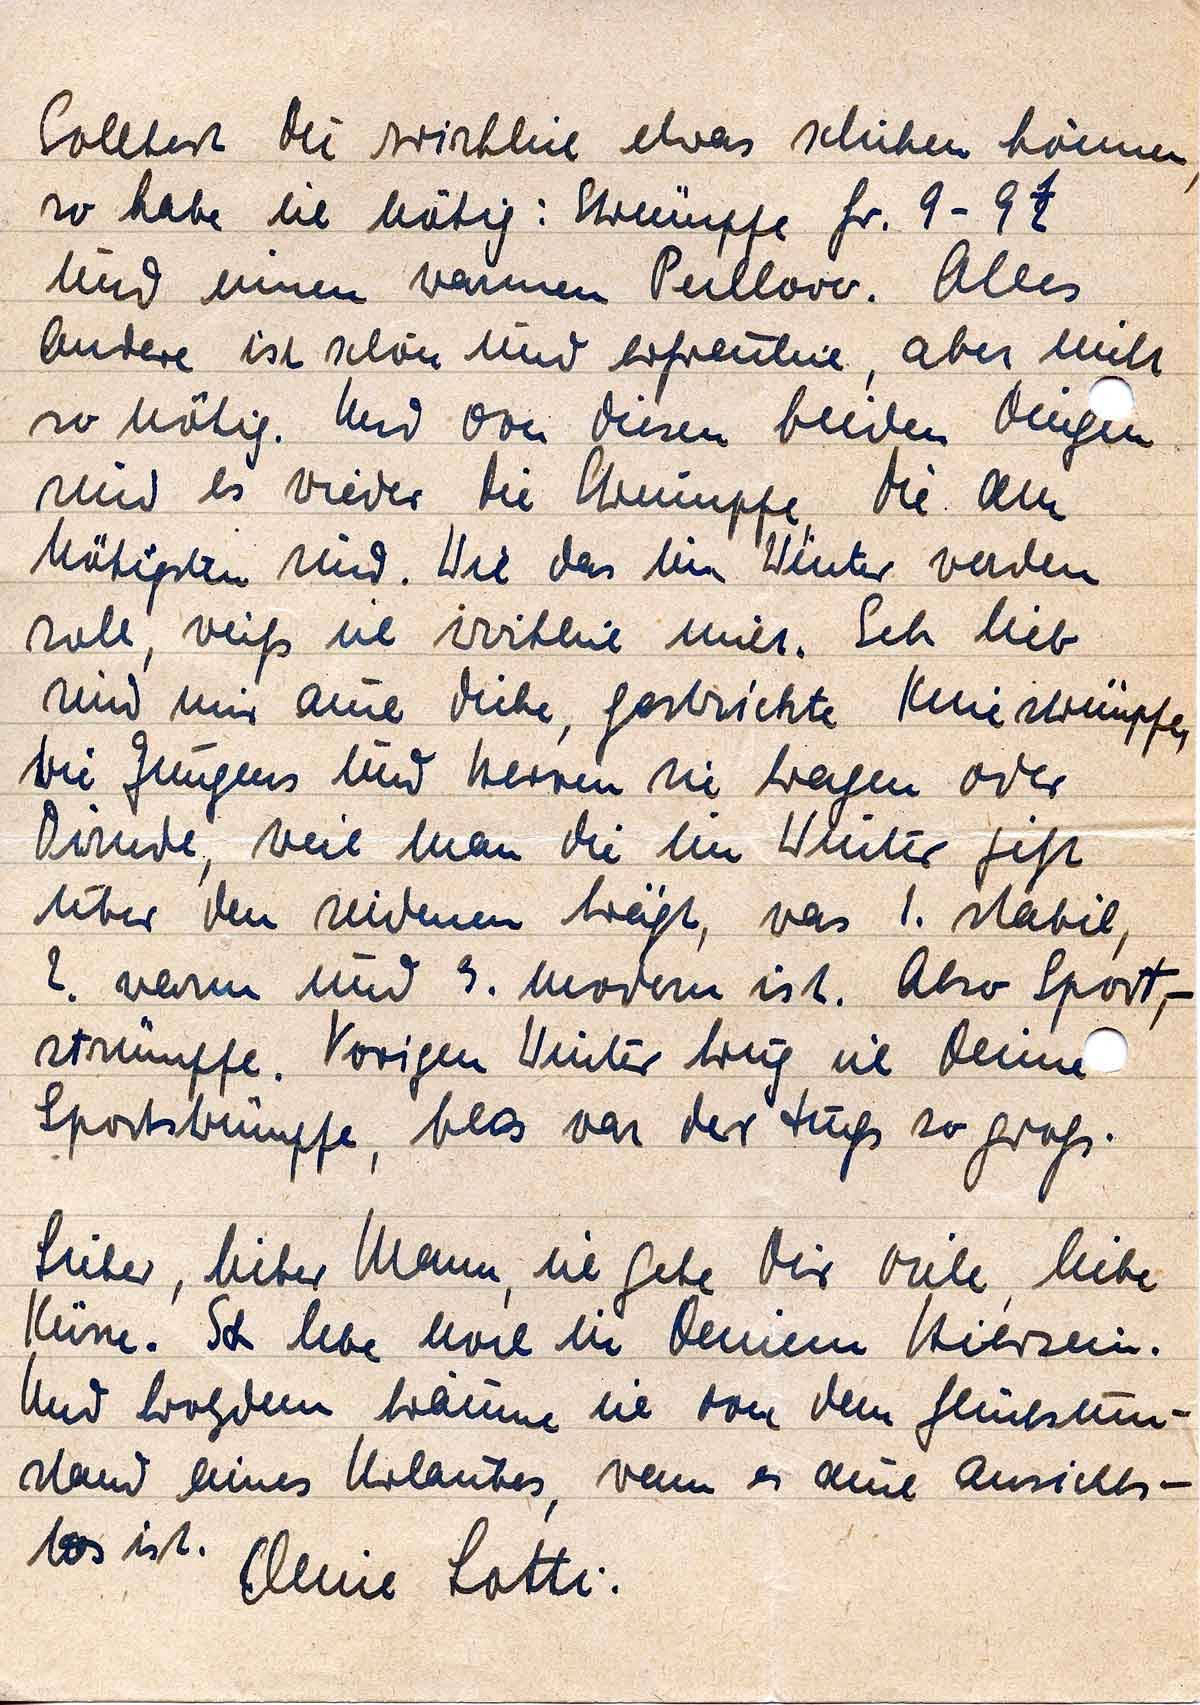 Solltest Du wirklich etwas schicken können,
so habe ich nötig: Strümpfe Gr. 9 - 9½
und einen warmen Pullover. Alles
andere ist schön und erfreulich, aber nicht
so nötig. Und von diesen beiden Dingen
sind es wieder die Strümpfe, die am
nötigsten sind. Wie das im Winter werden
soll, weiß ich wirklich nicht. Sehr lieb
sind mir auch dicke, gestrickte Kniestrümpfe,
wie Jungens und Herren sie tragen oder
Dirndl, weil man die im Winter jetzt
über den seidenen trägt, was 1. stabil,
2. warm und 3. modern ist. Also Sport,-
strümpfe. Vorigen Winter trug ich Deine
Sportstrümpfe, blos war der Fuß so groß.
Lieber, lieber Mann, ich gebe Dir viele, liebe
Küsse. Ich lebe noch in Deinem Hiersein.
Und trotzdem träume ich von dem Glücksum-
stand eines Urlaubes, wenn es auch aussichts-
los ist. Deine Lotti.